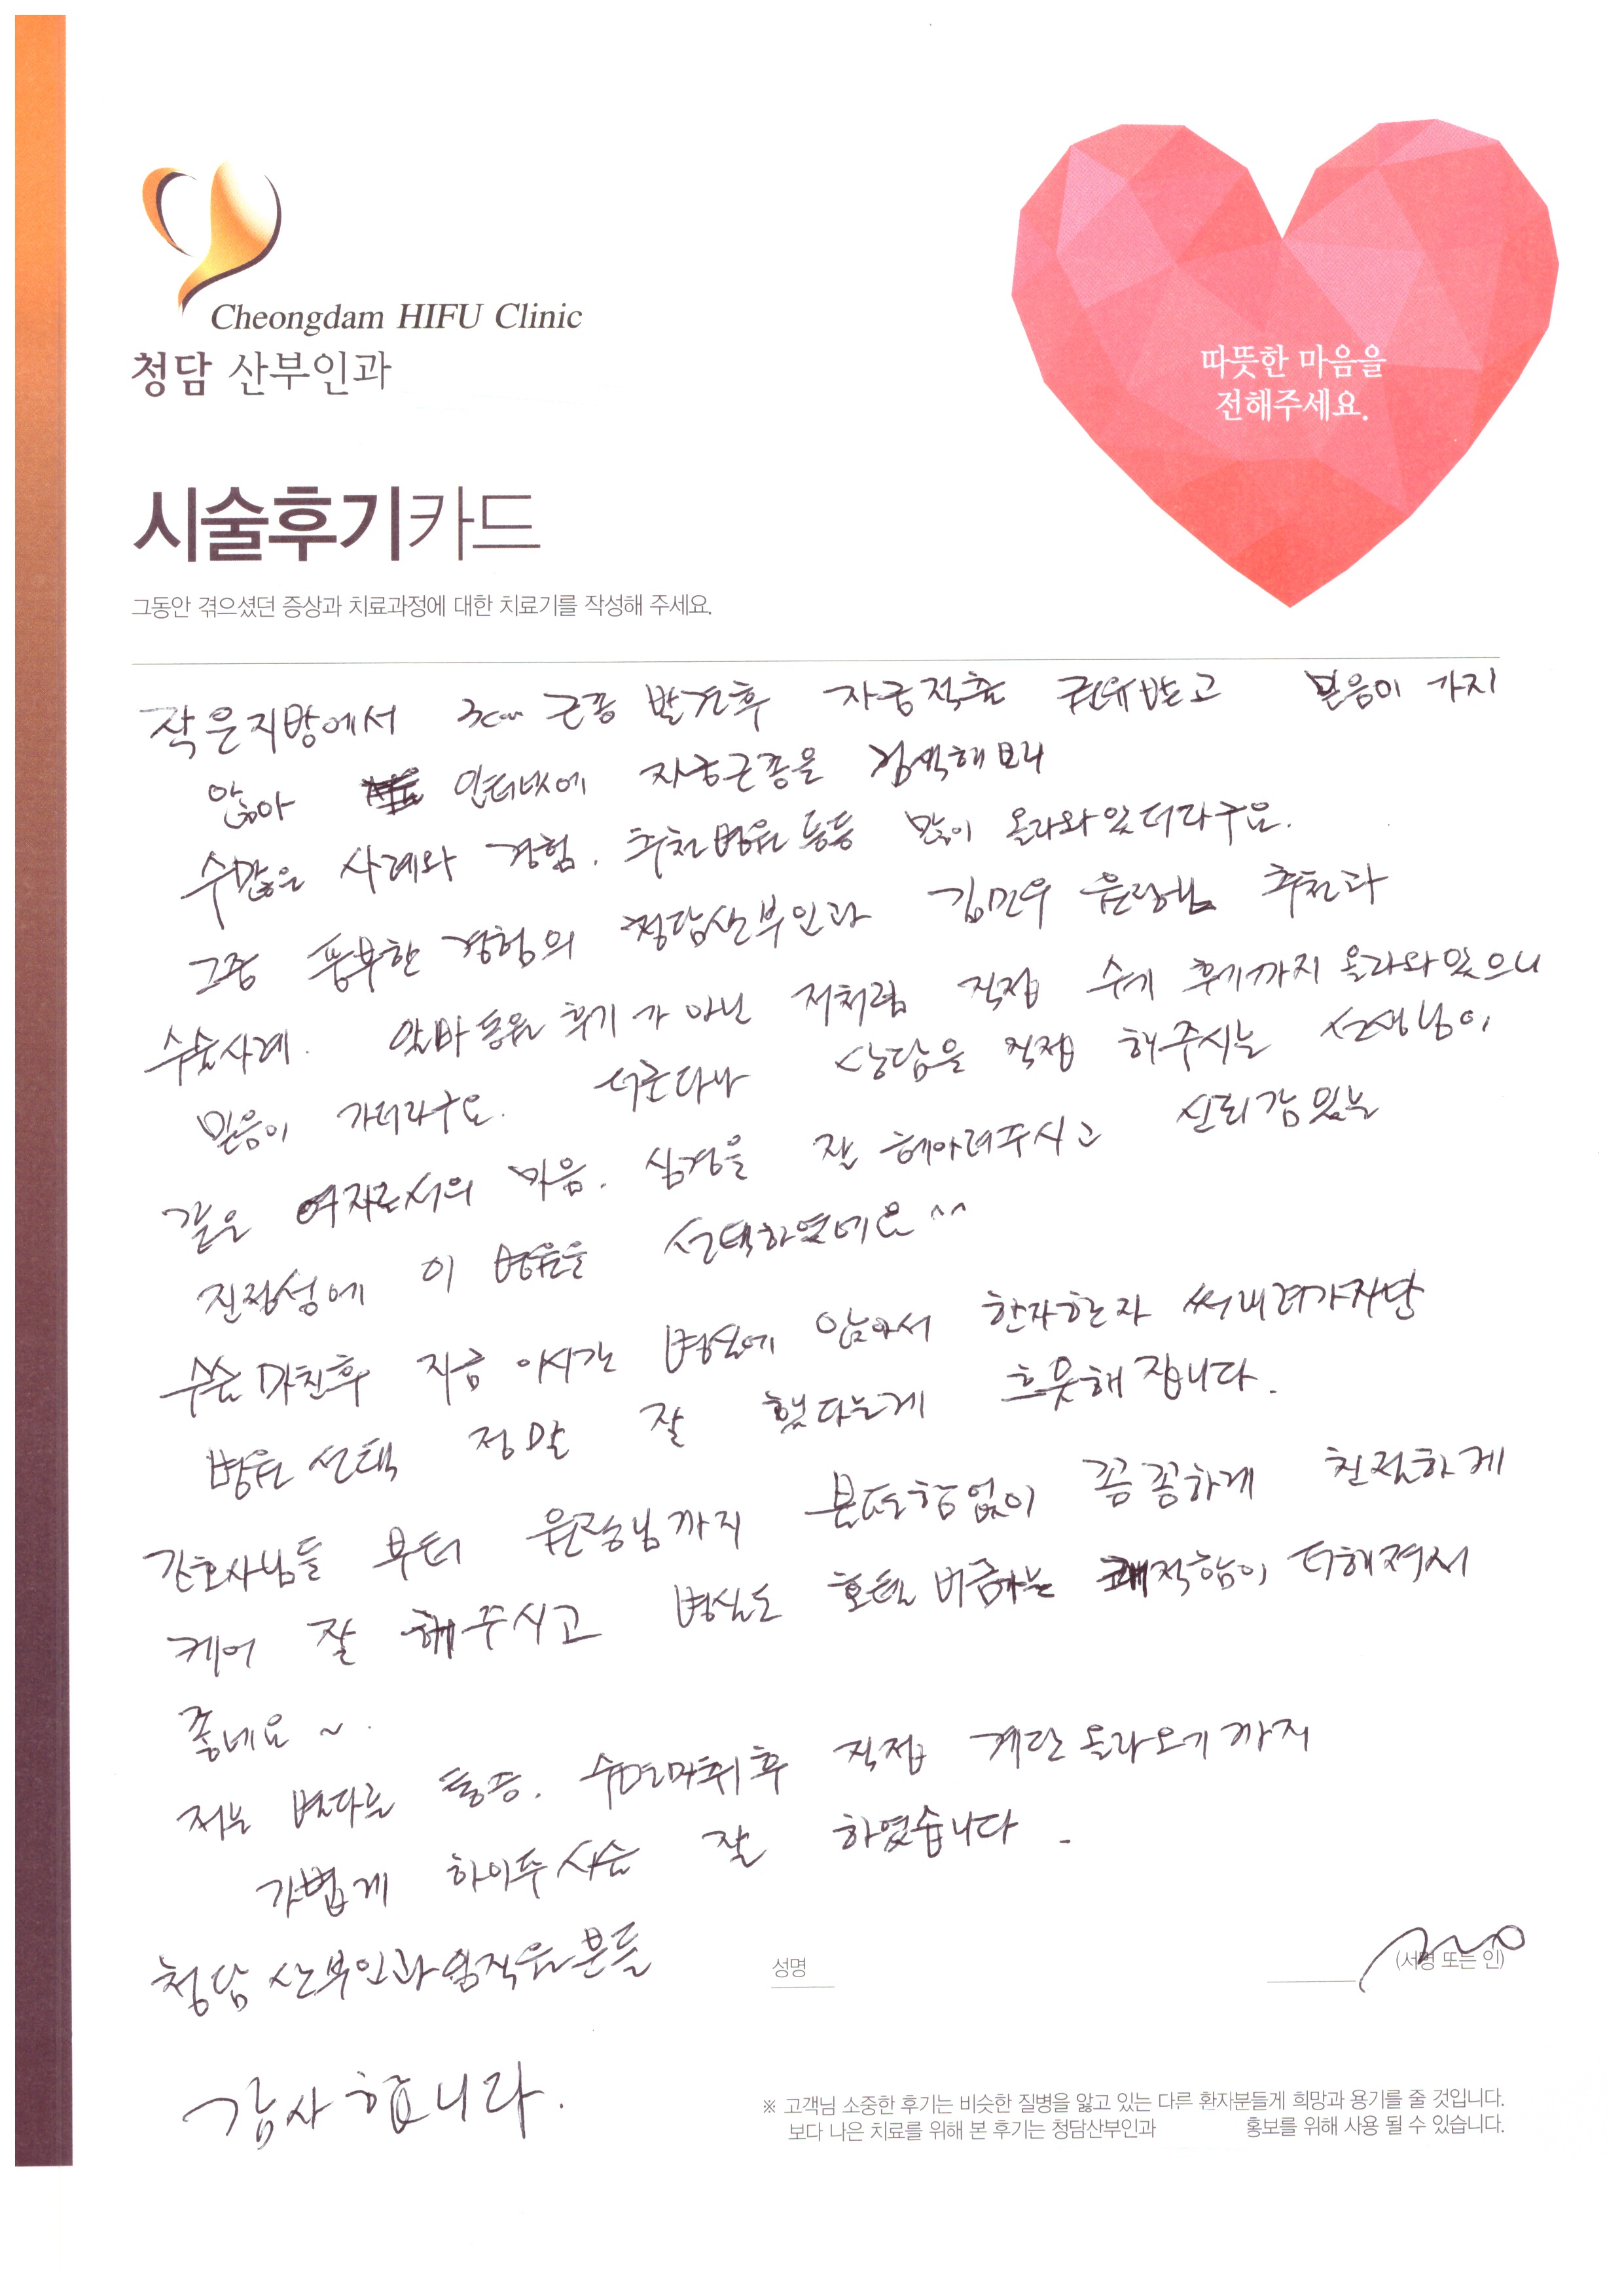 Cheongdam HIFU Clinic
청담 산부인과
따뜻한 마음을
전해주세요.
시술후기카드
그동안 겪으셨던 증상과 치료과정에 대한 치료기를 작성해 주세요.
작은지방에서 3cm 근종 발견후 자궁적출 권유받고 믿음이 가지
않아 인터넷에 자궁근종을 검색해보니
수많은 사례와 경험. 추천병원 등등 많이 올라와있더라구요.
그중 풍부한 경험의 청담산부인과 김민우 원장님 추천과
수술사례. 알바 동원 후기가 아닌 저처럼 직접 수기 후기까지 올라와있으니
믿음이 가더라구요. 서론다나 상담을 직접 해주시는 선생님이
같은 여자로서의 마음. 심경을 잘 헤아려주시고 신뢰감있는
진정성에 이 병원을 선택하였네요^^
수술 마친후 지금 이시간 병실에 앉아서 한자한자 써내려가지만
병원선택 정말 잘 했다는게 흐뭇해집니다.
간호사님들 부터 원장님까지 불편함없이 꼼꼼하게 친절하게
케어 잘 해주시고 병실도 호텔 버금가는 쾌적함이 더해져서
좋네요 ~.
저는 별다른 통증. 수면마취후 직접 계단올라오기까지
가볍게 하이푸시술 잘 하였습니다.
청담 산부인과 임직원분들
성명
(서명 또는 인)
감사합니다.
※ 고객님 소중한 후기는 비슷한 질병을 앓고 있는 다른 환자분들게 희망과 용기를 줄 것입니다.
보다 나은 치료를 위해 본 후기는 청담산부인과 홍보를 위해 사용 될 수 있습니다.